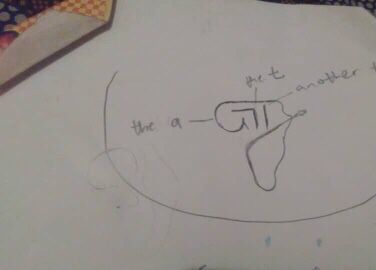 the t
another t
the a